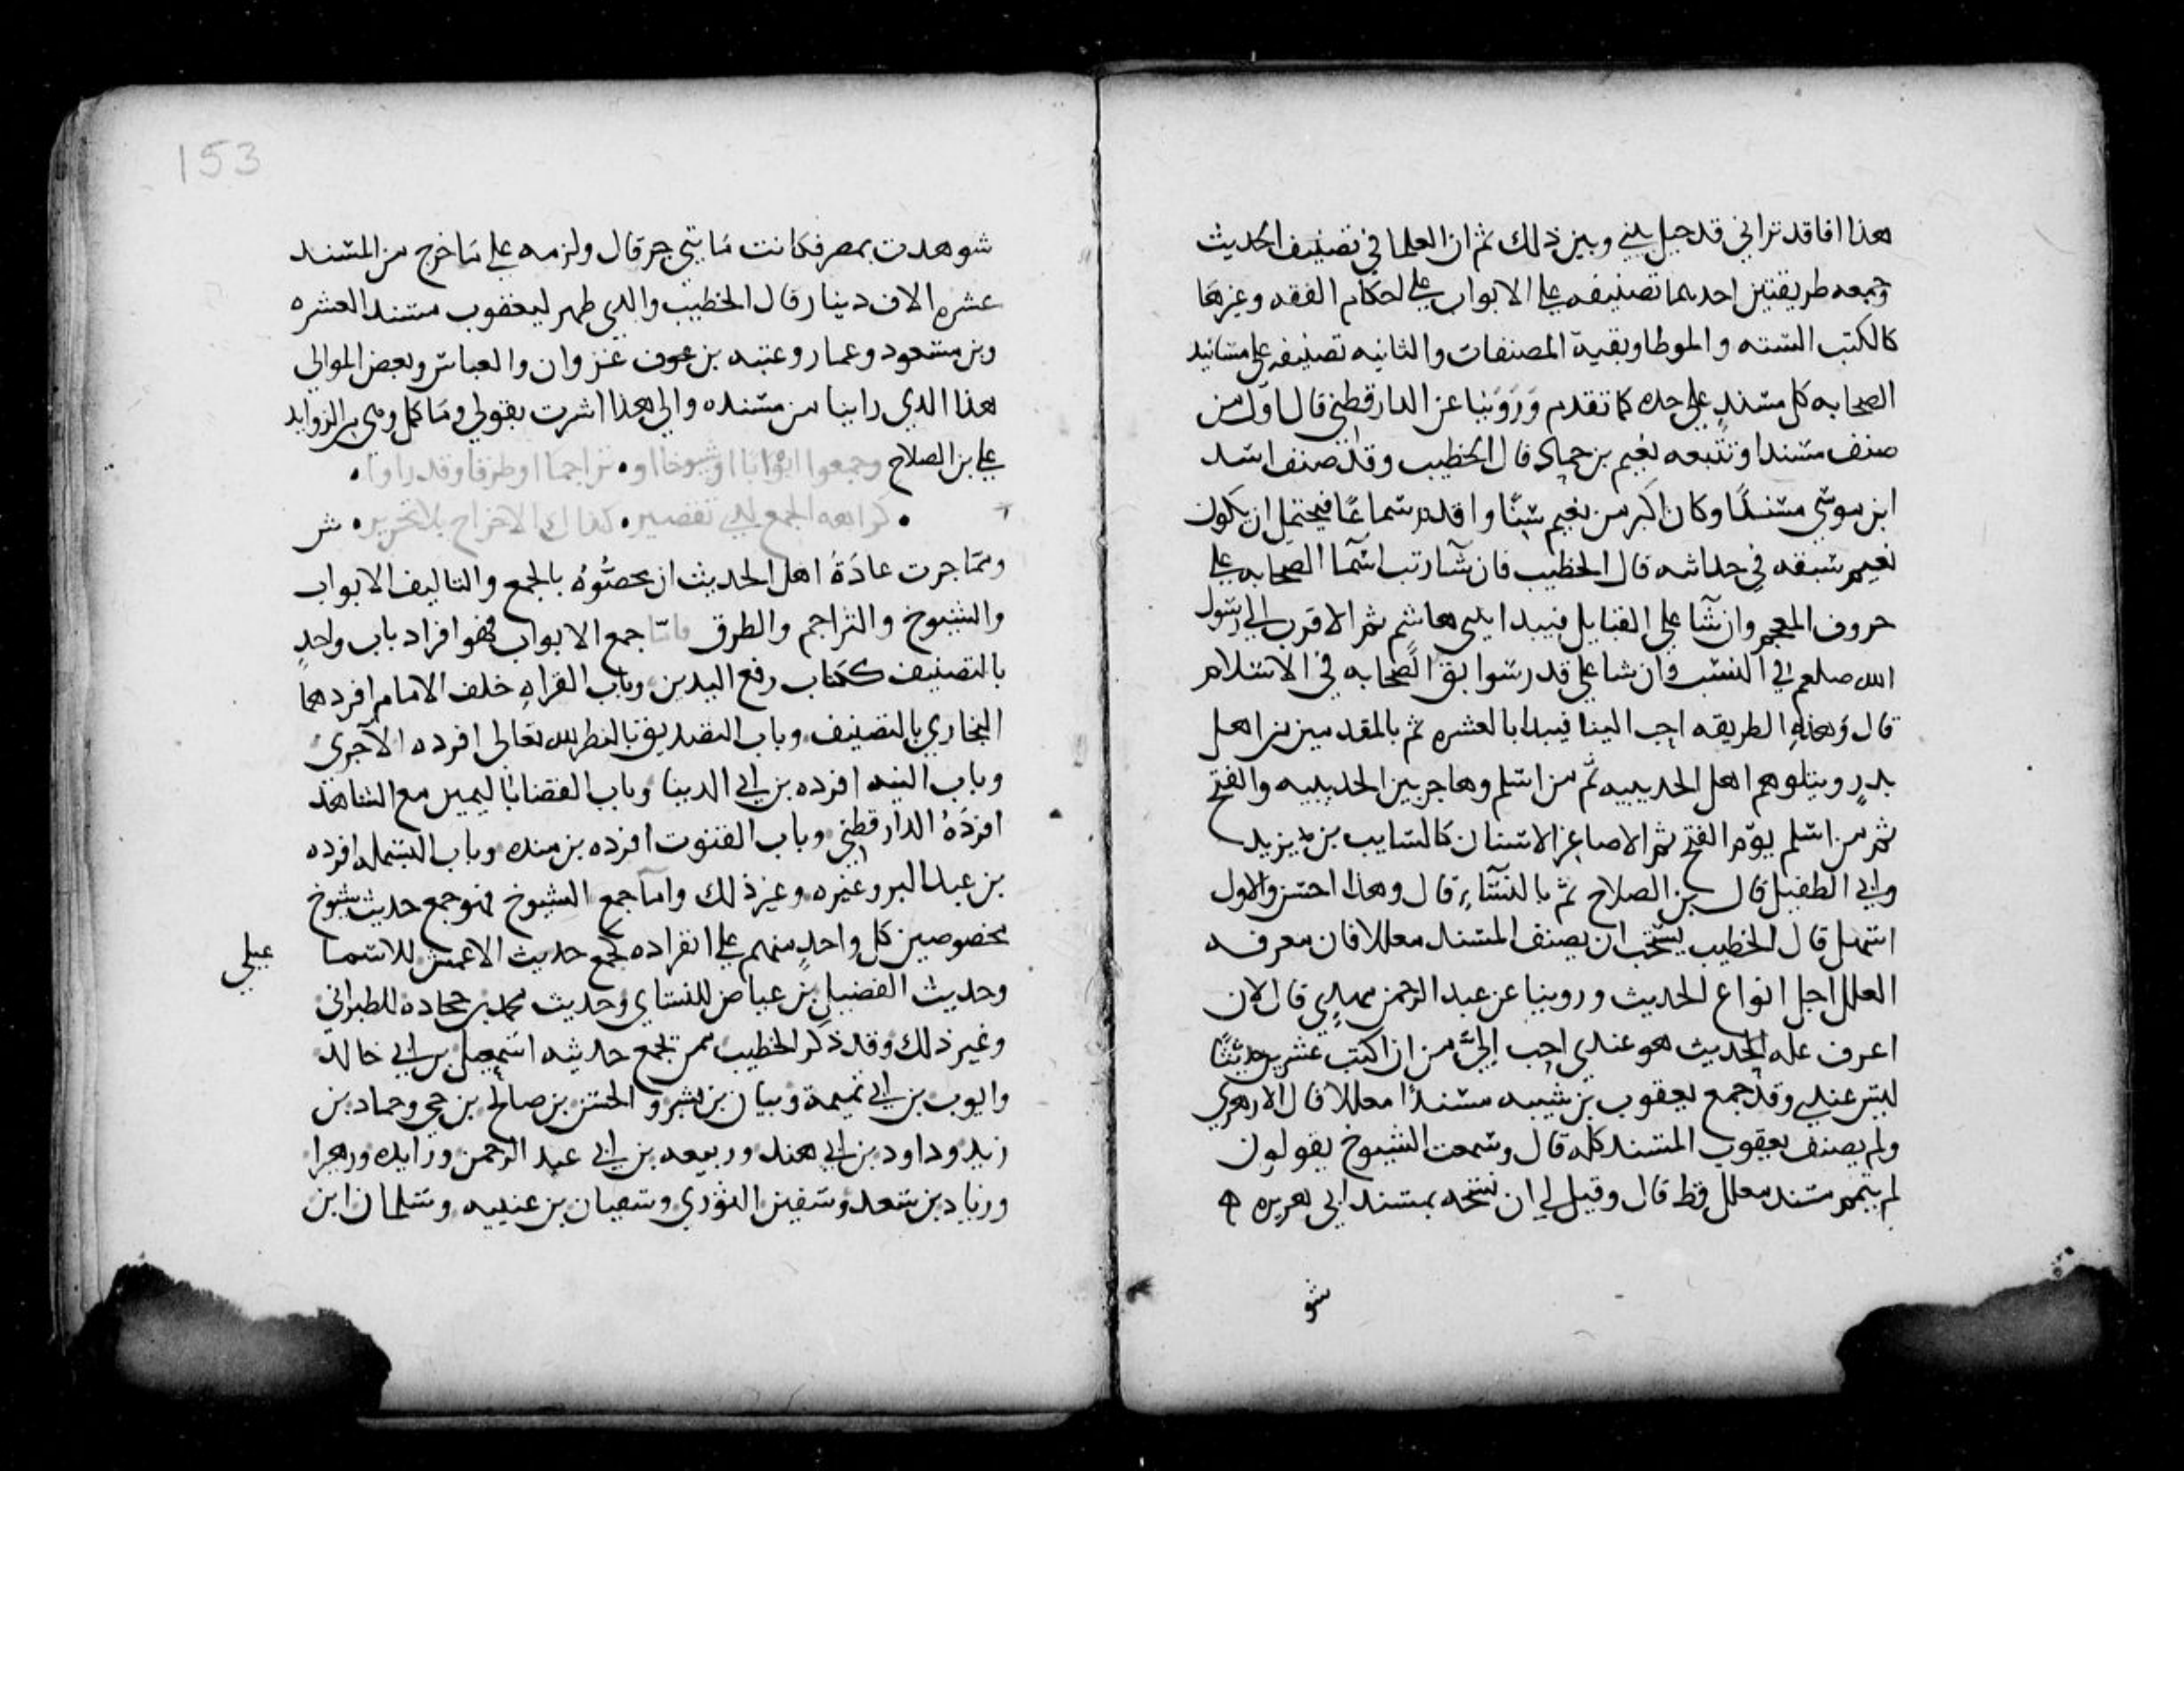 هذا افاقد تراني قد حيل بيني وبين ذلك ثم ان العلما في تصنيف الحديث
وجمعه طريقتين احدىهما تصنيفه على الابواب على احكام الفقه وغيرها
كالكتب السته والموطا وبقية المصنفات والثانيه تصنيفه على مسانيد
الصحابه كل مسندٍ على حده كما تقدم وَرَوَيْنا عن الدارقطني قال اول من
صنف مسندا وتتبعه نعيم بن حماد قال الخطيب وقد صنف اسد
ابن موسى مسندًا وكان اكبر من نعيم سنًّا واقدم سماعًا فيحتمل ان يكون
نعيم سبقه في حداثته قال الخطيب فان شآ رتب اسمآ الصحابه على
حروف المعجم وان شآ على القبايل فيبدا ببنى هاشم ثم الاقرب الى رسول
الله صلعم في النسب وان شا على قدر سوابق الصحابه في الاسلام
قال وَهذهِ الطريقه احب الينا فيبدا بالعشره ثم بالمقدمين من اهل
بدرٍ ويتلوهم اهل الحديبيه ثم من اسلم وهاجر بين الحديبيه والفتح
ثم من اسلم يوم الفتح ثم الاصاغر الاسنان كالسايب بن يزيد
وابي الطفيل قال بن الصلاح ثم بالنسآءِ قال وهذا احسن والاول
اسهل قال الخطيب يستحب ان يصنف المسند معللا فان معرفه
العلل اجل انواع الحديث وروينا عن عبد الرحمن بن مهدي قال لان
اعرف عله الحديث هو عندي احب اليَّ من ان اكتب عشرين حديثًا
ليس عندي وقد جمع يعقوب بن شيبه مسندًا معللا قال الازهري
ولم يصنف يعقوب المسند كله قال وسمعت الشيوخ يقولون
لم يتمم مسند معلل قط قال وقيل لي ان نسخه بمسند ابي هريره
شو
153
شوهدت بمصر فكانت مَايتي جز قال ولزمه على مَا خرج من المسند
عشره الاف دينار قال الخطيب والذي ظهر ليعقوب مسند العشره
وبن مسعود وعمار وعتبه بن غزوان والعباس وبعض الموالي
هذا الذي راينا من مسنده والى هذا اشرت بقولي ومَا كمل ومن الزوايد
على بن الصلاح وجمعوا ابْوابًا اوشيوخا او • تراجما او طرقا وقد راوا •
• كراهه الجمع لذي تقصير • كذاك الاخراج بلا تحرير • ش
ومما جرت عادَةُ اهل الحديث ان يخصُّوهُ بالجمع والتاليف الابواب
والشيوخ والتراجم والطرق فامّا جمع الابواب فهو افراد باب واحدٍ
بالتصنيف ككتاب رفع اليدين وباب القراه خلف الامام افردهما
البخاري بالتصنيف وباب التصديق بالنظر لله تعالى افرده الآجرى
وباب النيه افرده بن ابي الدنيا وباب القضا باليمين مع الشاهد
افردَهُ الدارقطني وباب القنوت افرده بن منده وباب البسمله افرده
بن عبد البر وغيره وغير ذلك وامآ جمع الشيوخ فهو جمع حديث شيوخ
مخصوصين كل واحدٍ منهم على انفراده كجمع حديث الاعمش للاسما عيلي
وحديث الفضيل بن عياض للنساي وحديث محمد بن جحاده للطبراني
وغير ذلك وقد ذكر الخطيب ممن يجمع حديثه اسمعيل بن ابي خالد
وايوب بن ابي تميمة وبيان بن بشر والحسن بن صالح بن حي وحماد بن
زيد وداود بن ابي هند وربيعه بن ابي عبد الرحمن وزايده وزهيرا
وزياد بن سعد وسفين الثوري وسفيان بن عيينه وسليمان ابن